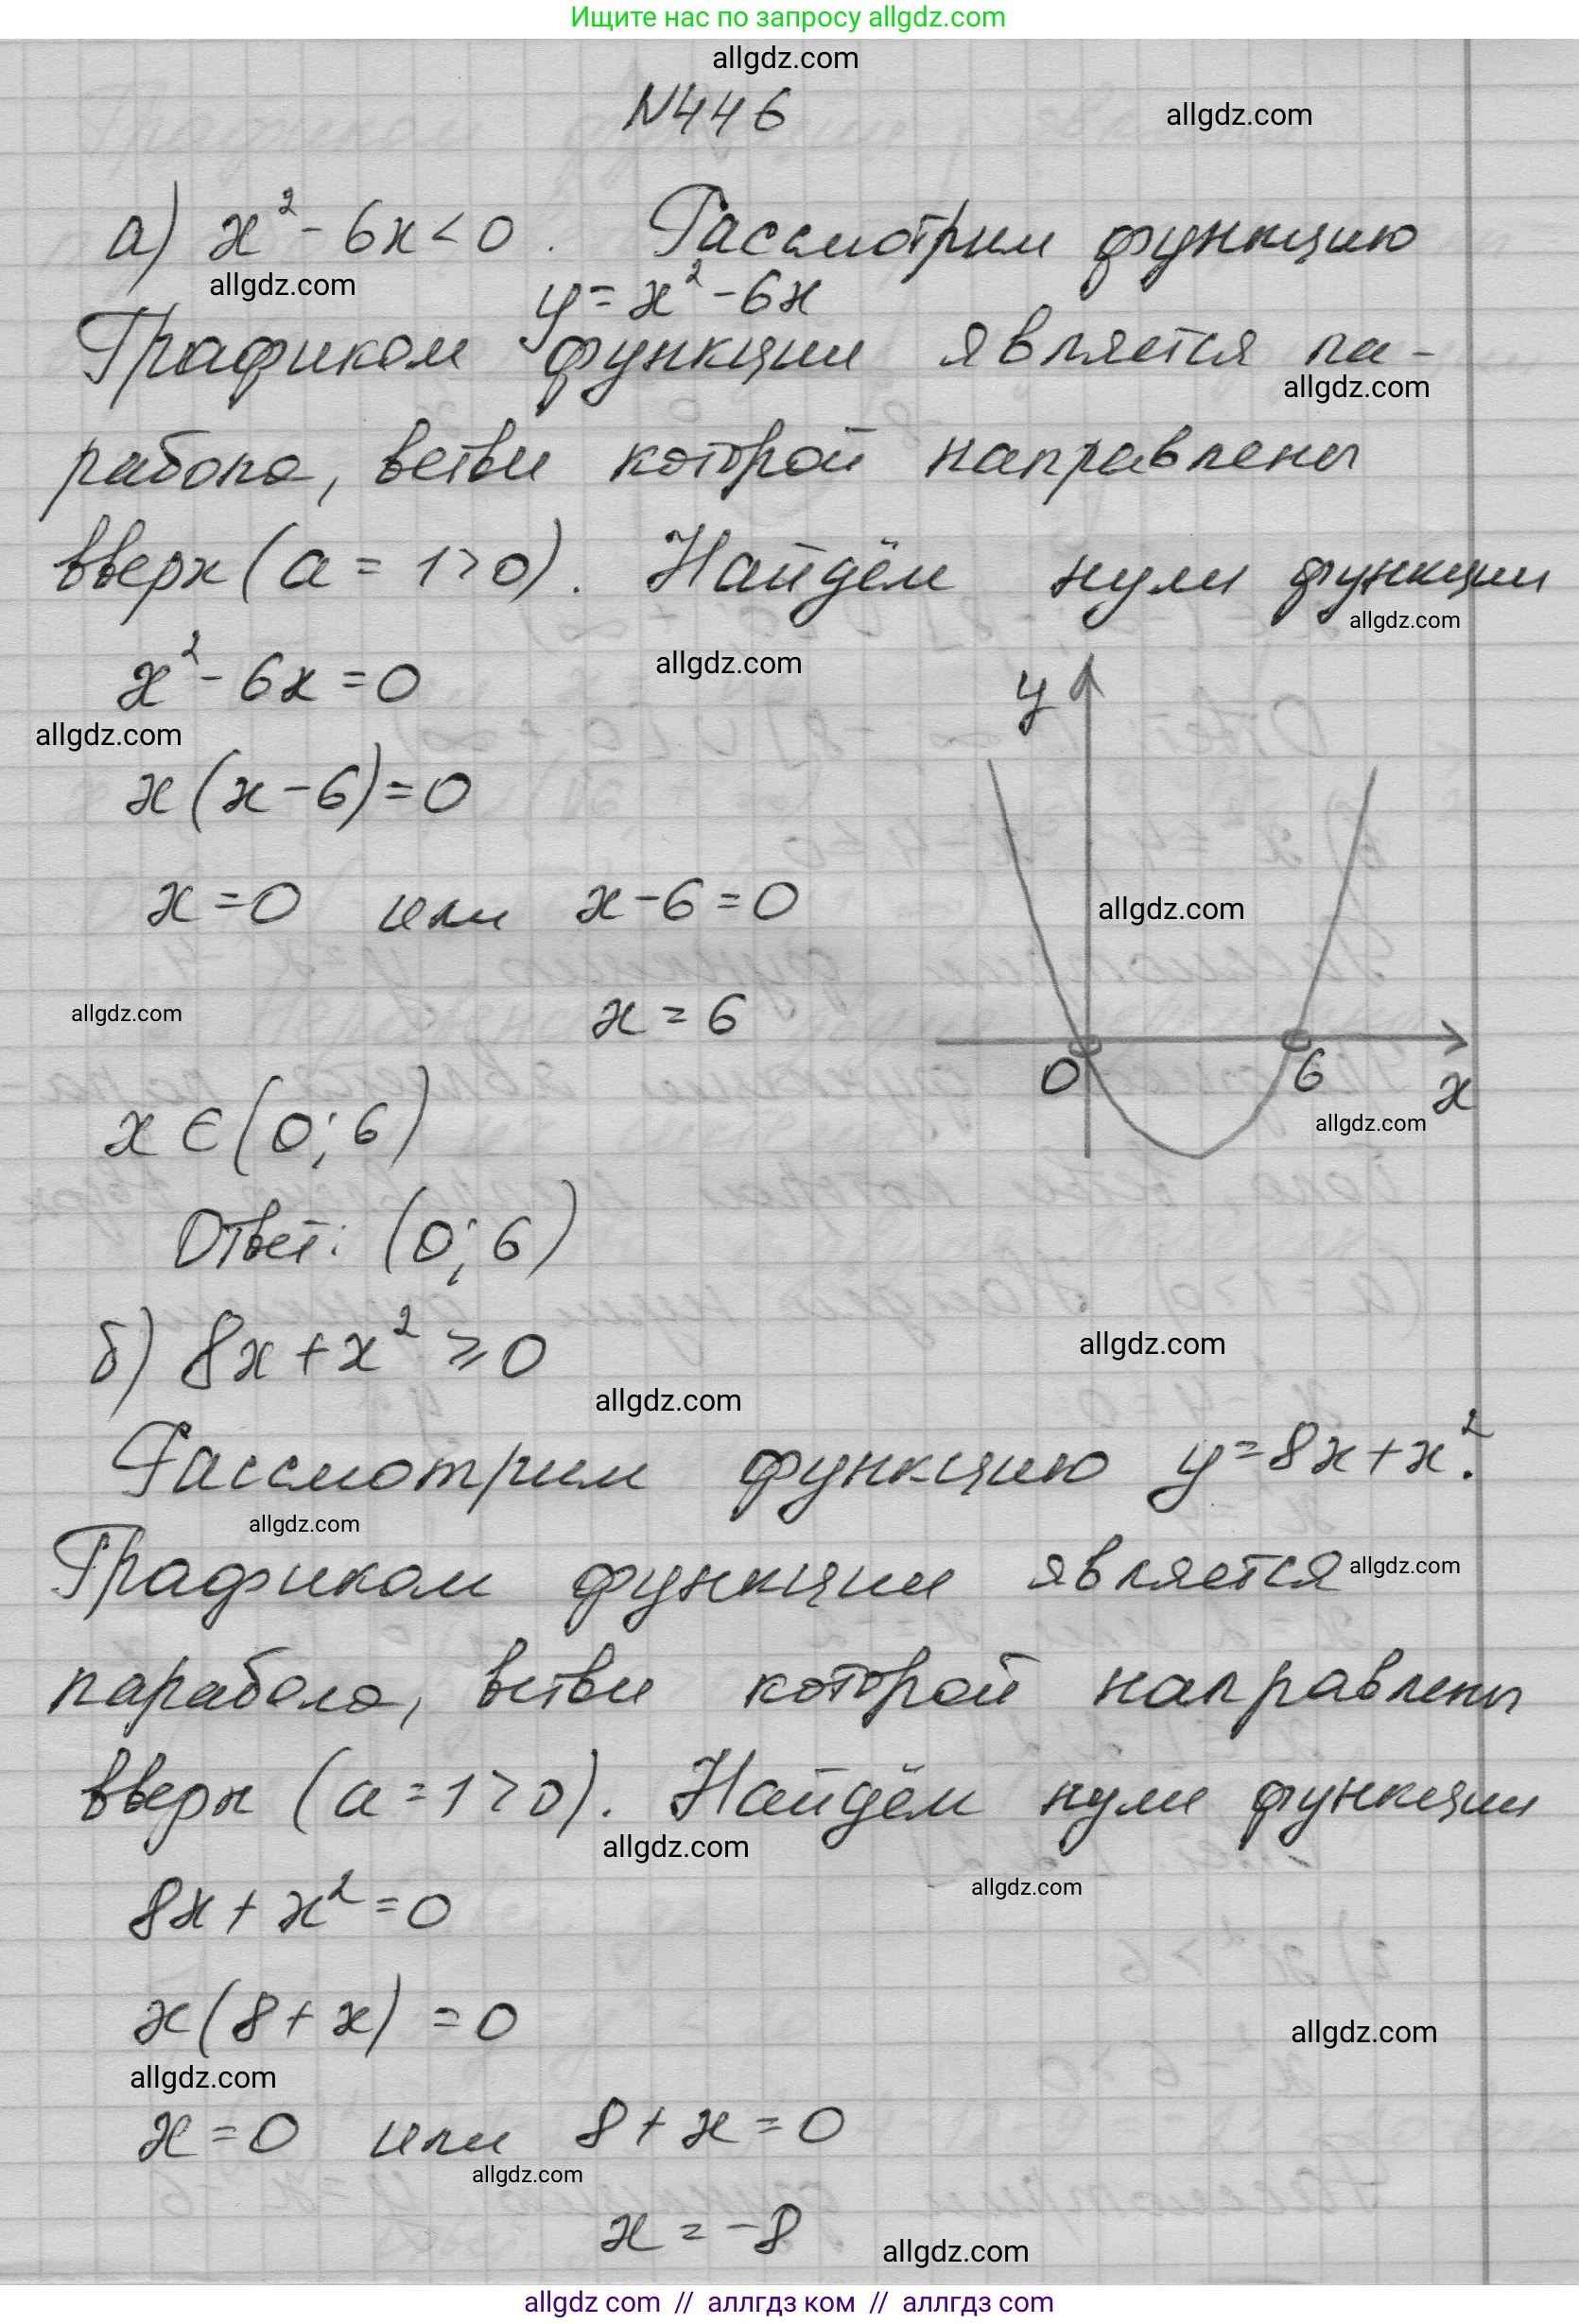 Ищите нас по запросу allgdz.com
allgdz.com
N446
allgdz.com
а) x² - 6x < 0. Рассмотрим функцию
allgdz.com
y = x² - 6x
Графиком функции является па-
allgdz.com
рабола, ветви которой направлены
вверх (a = 1 > 0). Найдём нули функции
allgdz.com
x² - 6x = 0
allgdz.com
y
allgdz.com
x(x - 6) = 0
x = 0 или x - 6 = 0
allgdz.com
allgdz.com
x = 6
0 6 x
allgdz.com
x ∈ (0; 6)
Ответ: (0; 6)
б) 8x + x² ≥ 0
allgdz.com
allgdz.com
Рассмотрим функцию y = 8x + x².
allgdz.com
Графиком функции является
allgdz.com
парабола, ветви которой направлены
вверх (a = 1 > 0). Найдём нули функции
allgdz.com
allgdz.com
8x + x² = 0
x(8 + x) = 0
allgdz.com
allgdz.com
x = 0 или 8 + x = 0
allgdz.com
x = -8
allgdz.com
allgdz com // аллгдз ком // аллгдз com